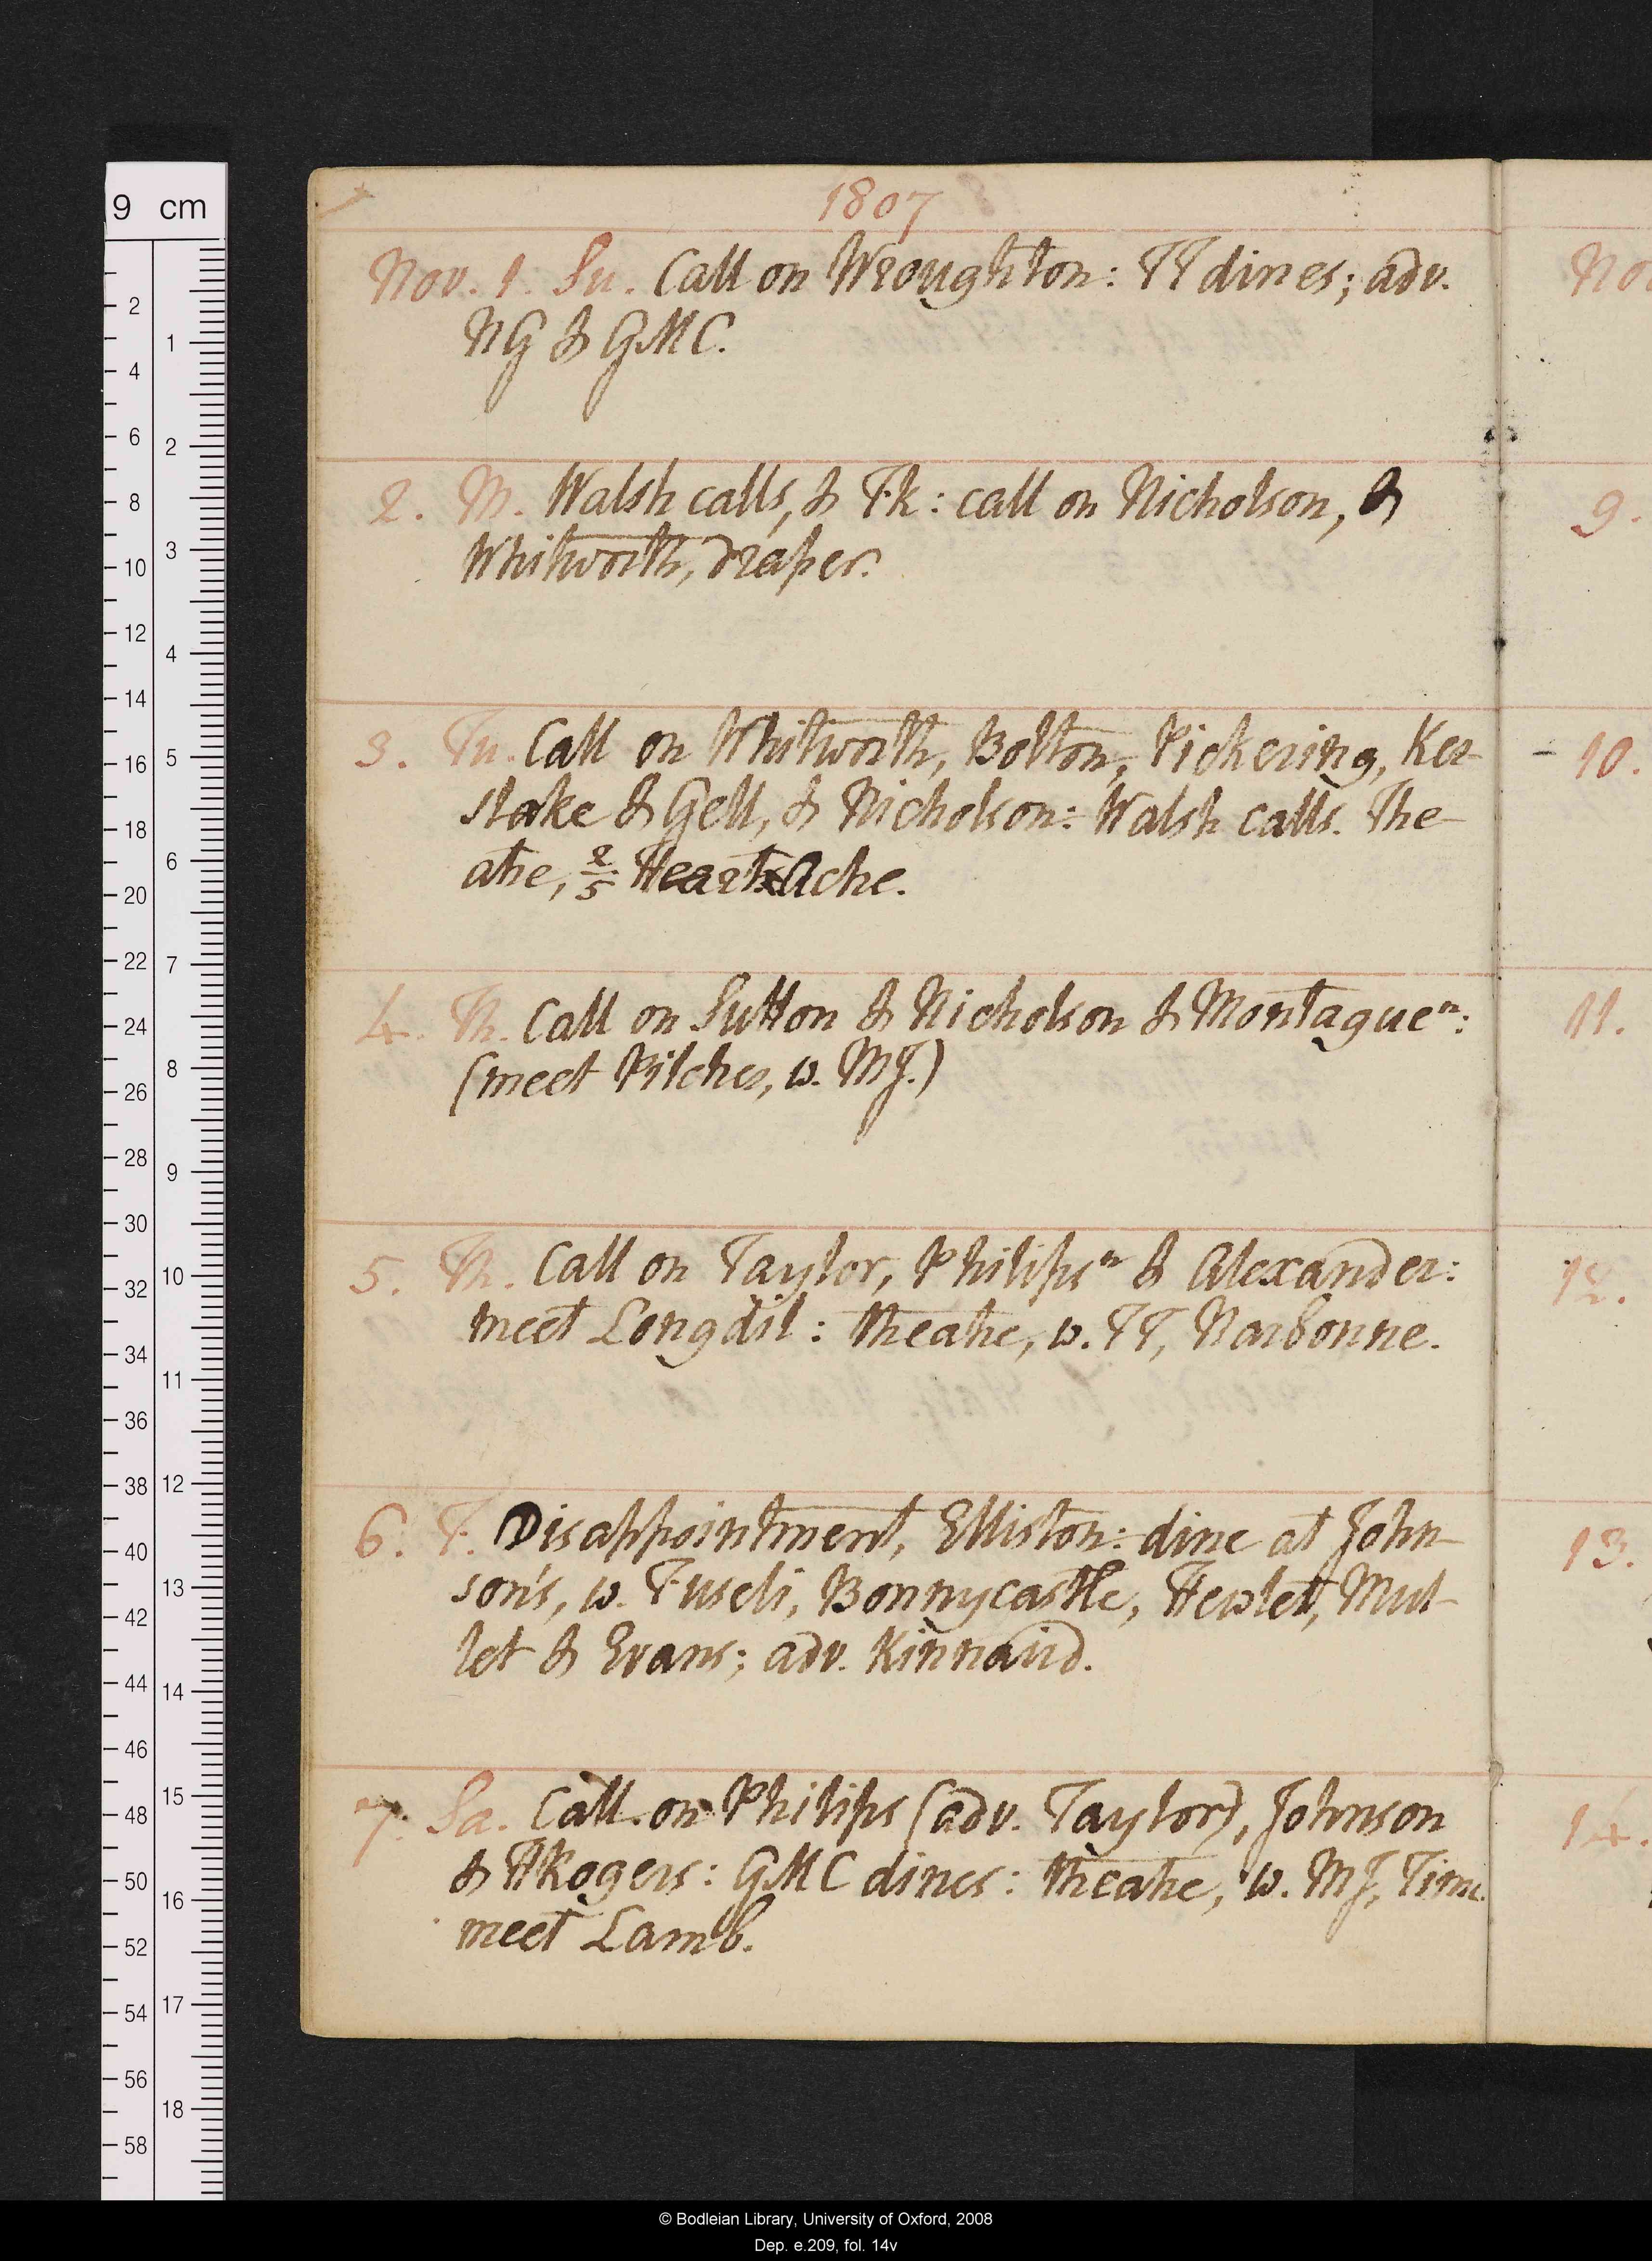 1807
Nov. 1. Su. Call on Wroughton: TT dines; adv.
NG & GMC.
2. M. Walsh calls, & Fk: call on Nicholson, &
Whitworth, draper.
3. Tu. Call on Whitworth, Bolton, Pickering, Ker-
slake & Gell, & Nicholson: Walsh calls. The-
atre, 2/5 Heart-Ache.
4. W. Call on Sutton & Nicholson & Montague n:
(meet Pilcher, w. MJ.)
5. Th. Call on Taylor, Philips n & Alexander:
meet Longdil: theatre, w. TT, Narbonne.
6. F. Disappointment, Elliston: dine at John-
son's, w. Fuseli, Bonnycastle, Hewlet, Mul-
let & Evans; adv. Kinnaird.
7. Sa. Call on Philips (adv. Taylor), Johnson
& HRogers: GMC dines: theatre, w. MJ, Time
meet Lamb.
No
9.
- 10.
11.
12.
13.
14.
9 cm
2
4
6
8
10
12
14
16
18
20
22
24
26
28
30
32
34
36
38
40
42
44
46
48
50
52
54
56
58
1
2
3
4
5
6
7
8
9
10
11
12
13
14
15
16
17
18
© Bodleian Library, University of Oxford, 2008
Dep. e.209, fol. 14v